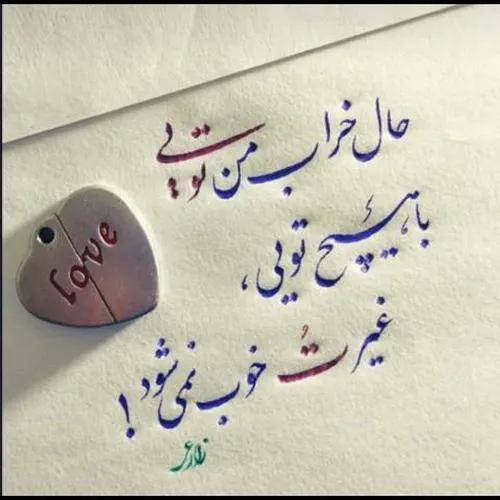 حال خراب من تویی
با هیچ تویی،
غیر تُ خوب نمی شود !
زارع
love